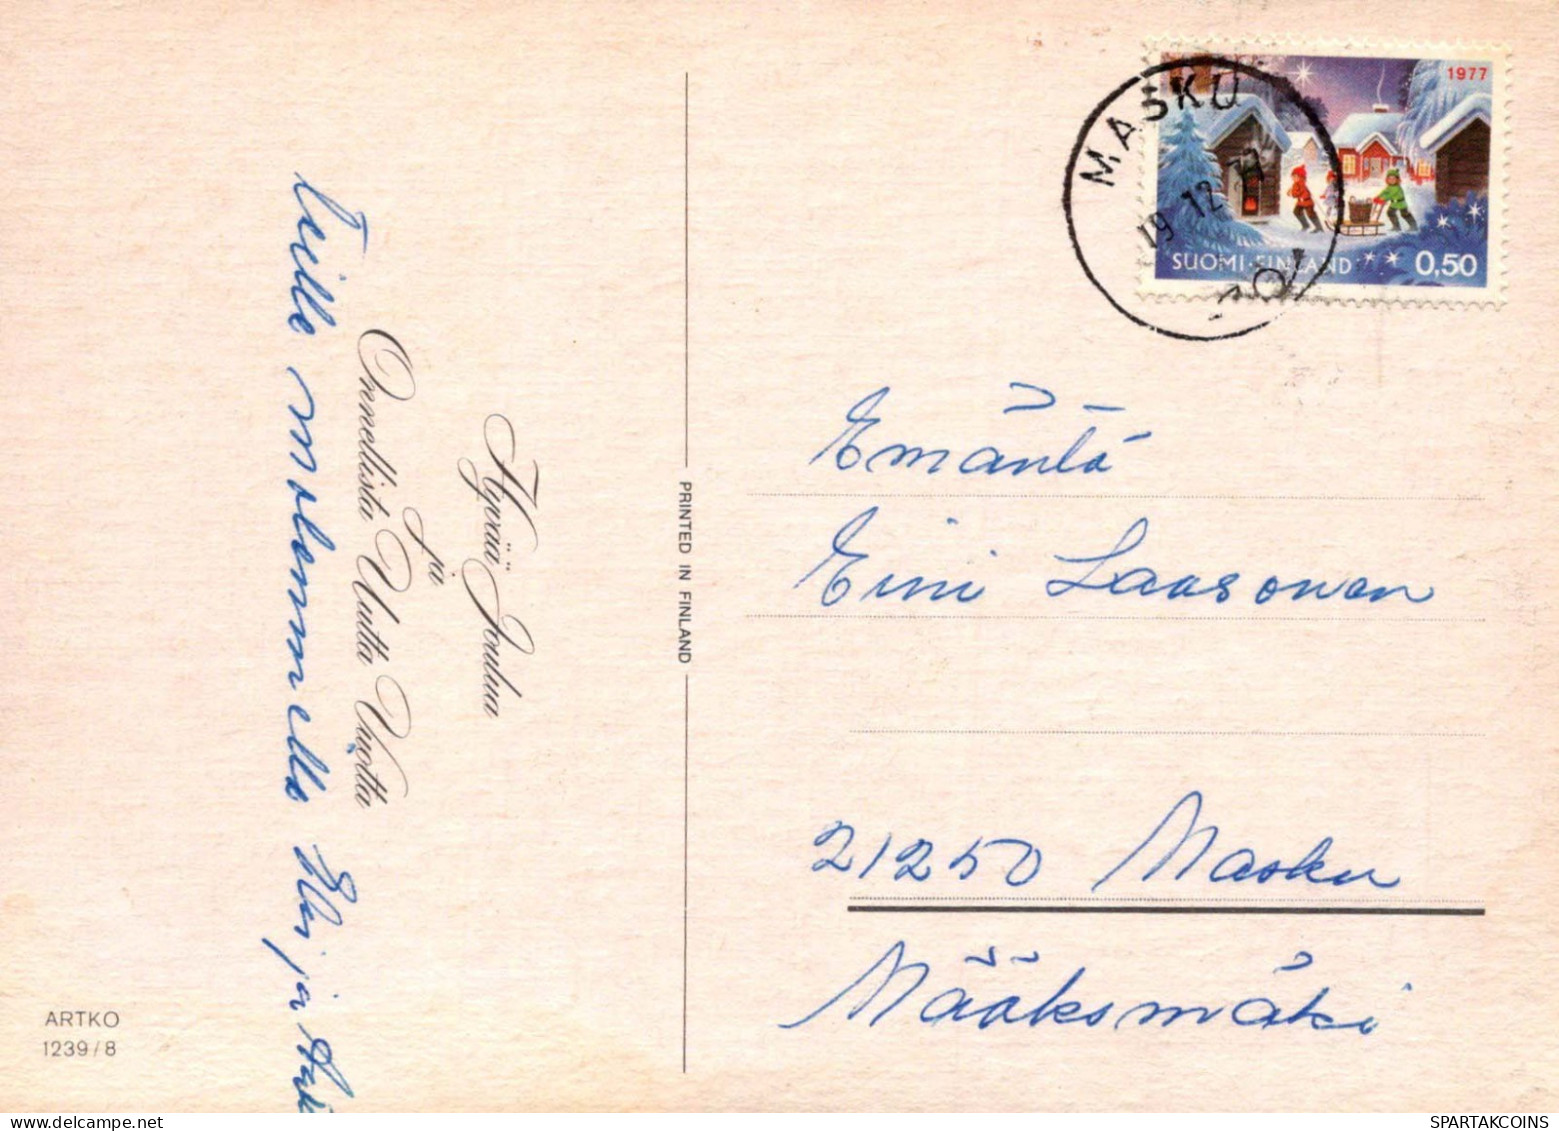 1977
MASKU
19.12.77
SUOMI·FINLAND
0,50
Hyvää Joulua
ja
Onnellista Uutta Vuotta
Teille molemmille
PRINTED IN FINLAND
Emäntä
Eini Laasonen
21250 Masku
Määksmäki
ARTKO
1239/8
SPARTAKCOINS